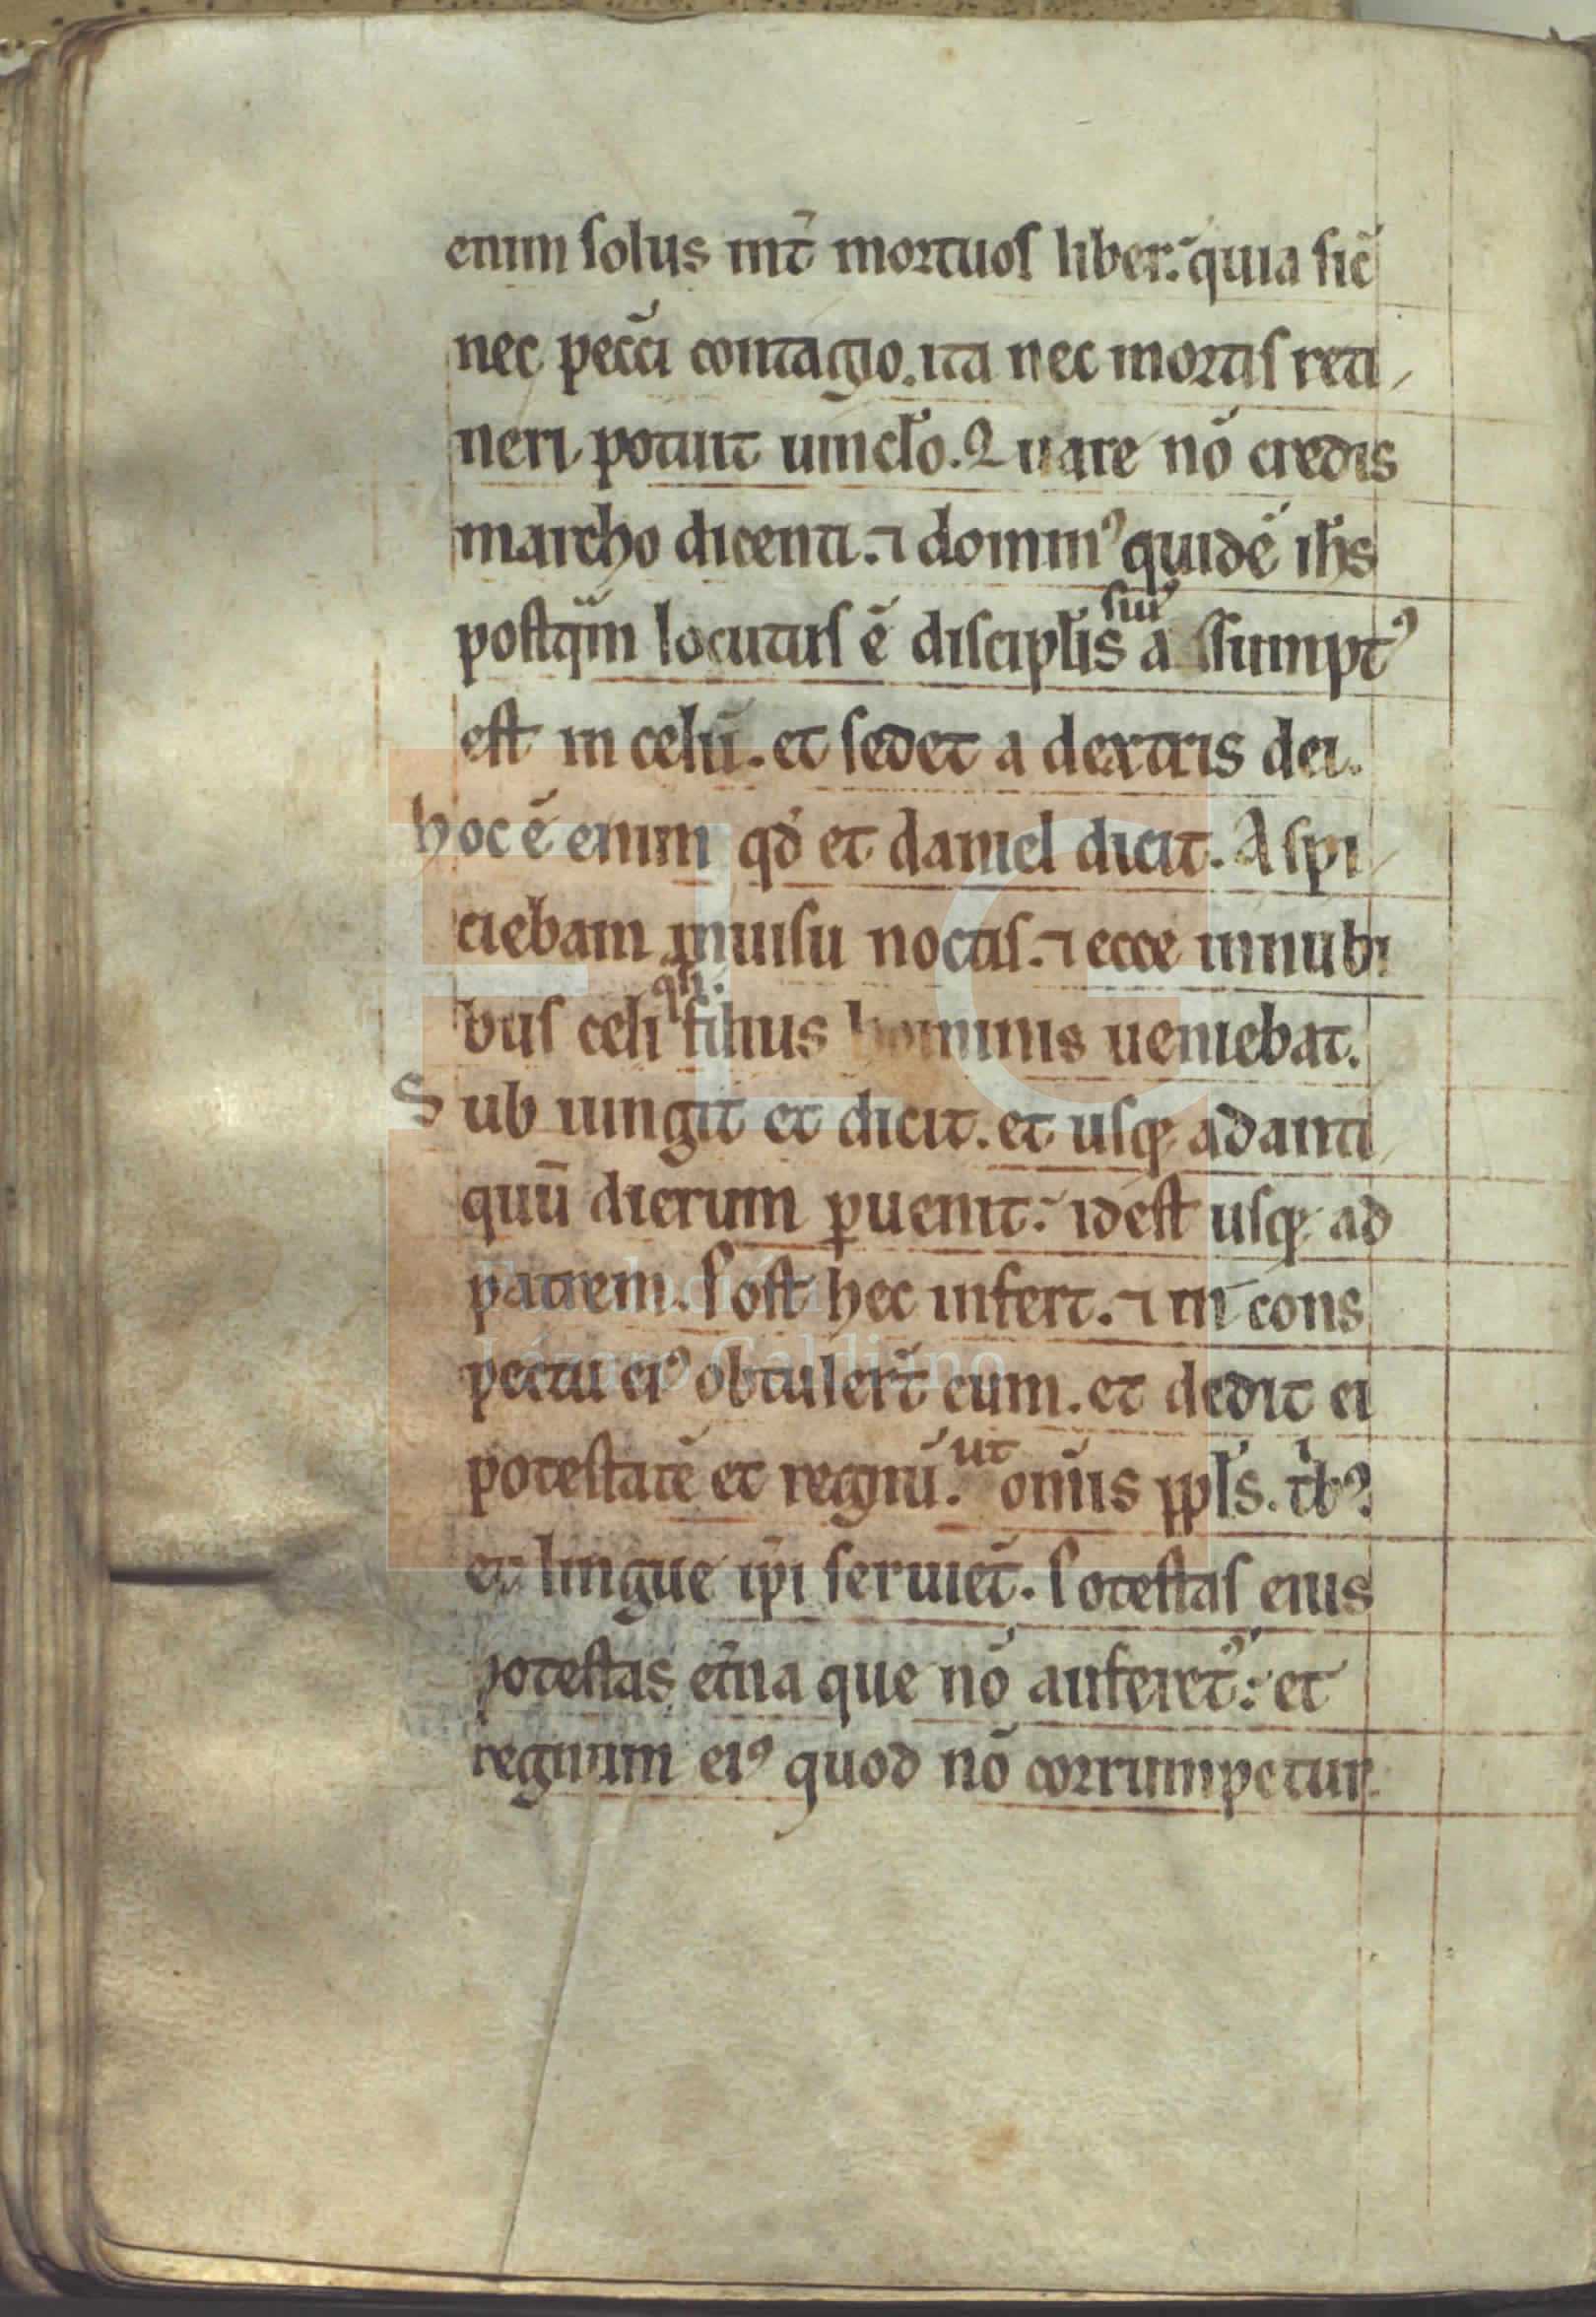 enim solus int̄ mortuos liber. quia sic̄
nec pecc̄i contagio. ita nec mortis reti
neri potuit uincl̄o. Quare nō credis
marcho dicenti. ⁊ dominꝰ quidē ih̄s
postq̄m locutus ē discipl̄is suis̄ assumptꝰ
est in celū. et sedet a dextris dei.
hoc ē enim qd̄ et daniel dicit. Aspi
ciebam in uisu noctis. ⁊ ecce in nubi
bus celi q̄si filius hominis ueniebat.
Sub iungit et dicit. et usqꝫ ad anti
quū dierum ꝑuenit. id est usqꝫ ad
patrem. Post hec infert. ⁊ in cons
pectu eiꝰ obtuler̄t eum. et dedit ei
potestatē et regnū. ut om̄is ppl̄s. tͥbꝰ
et lingue ip̄i seruiēt. Potestas eius
potestas et̄na que nō auferetᷣ. et
regnum eiꝰ quod nō corrumpetur.
Fundación
Lázaro Galdiano